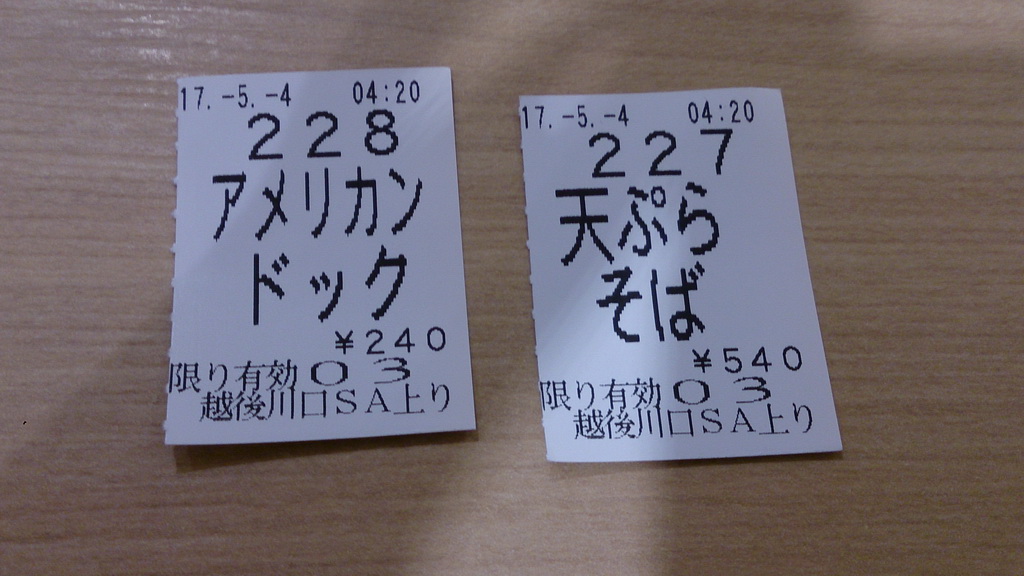 17.-5.-4 04:20
228
アメリカン
ドック
¥240
限り有効 03
越後川口SA上り
17.-5.-4 04:20
227
天ぷら
そば
¥540
限り有効 03
越後川口SA上り